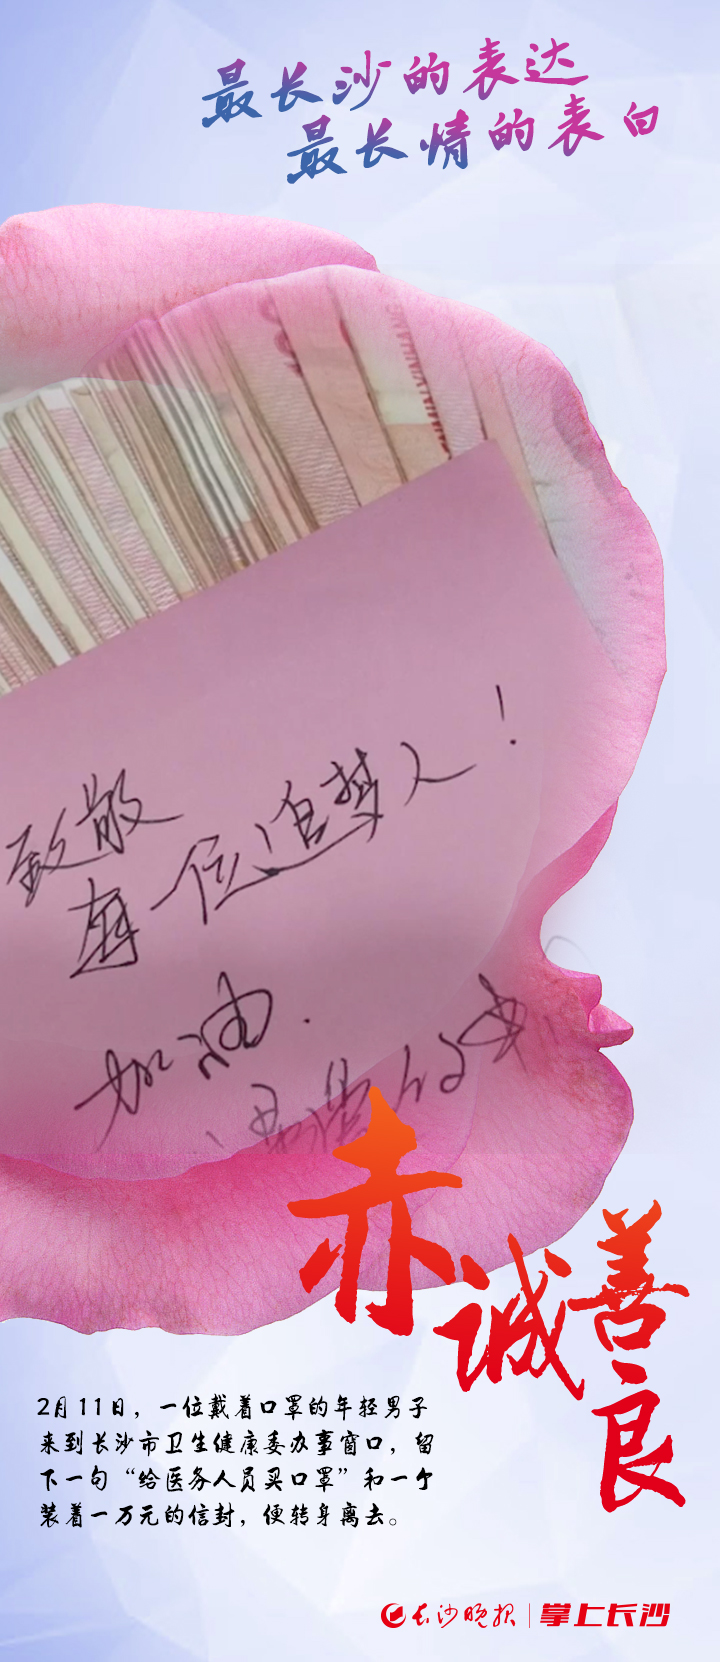 最长沙的表达
最长情的表白
致敬
每一位追梦人！
加油.
赤诚善良
2月11日，一位戴着口罩的年轻男子
来到长沙市卫生健康委办事窗口，留
下一句“给医务人员买口罩”和一个
装着一万元的信封，便转身离去。
长沙晚报 | 掌上长沙